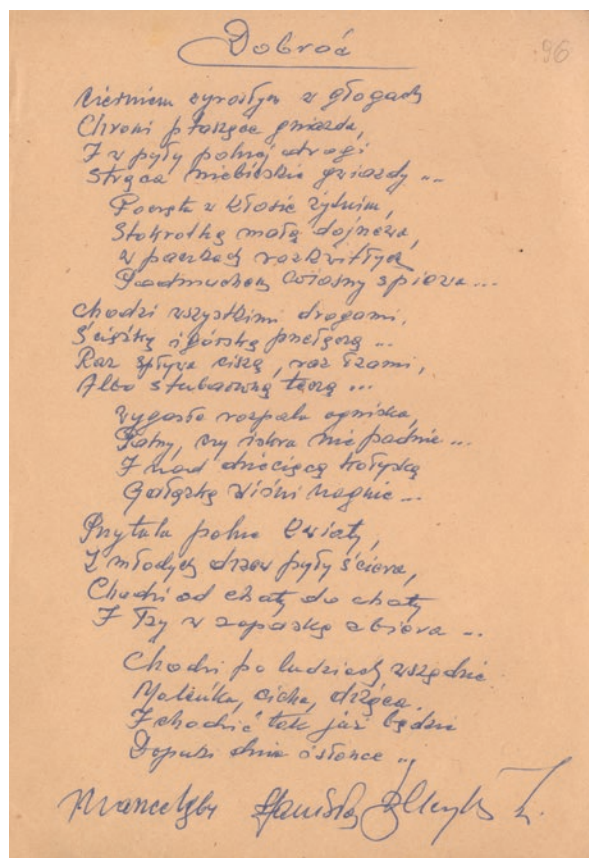 Dobroć
96
Cierniem wyrosłym w głogach
Chroni ptaszęce gniazda,
I w pyły polnej drogi
Strąca niebieskie gwiazdy ...
w kłosie żytnim,
Stokrotkę małą
W pączkach rozkwitłych
Podmuchem wiosny śpiewa ...
Chodzi wszystkimi drogami,
Ścieżką i górską przełęczą ...
Raz spływa ciszą, raz łzami,
Albo stubarwną tęczą ...
Wygasłe rozpala ogniska,
Patrzy, czy iskra nie padnie ...
I nad dziecięcą kołyską
Gałązkę wiśni nagnie ...
Przytula polne kwiaty,
Z młodych drzew pyły ściera,
Chodzi od chaty do chaty
I łzy w zapaskę zbiera ...
Chodzi po ludziach wszędzie
Maleńka, cicha, drżąca.
I chodzić tak już będzie
Dopóki dnia i słońca ...
Stanisław